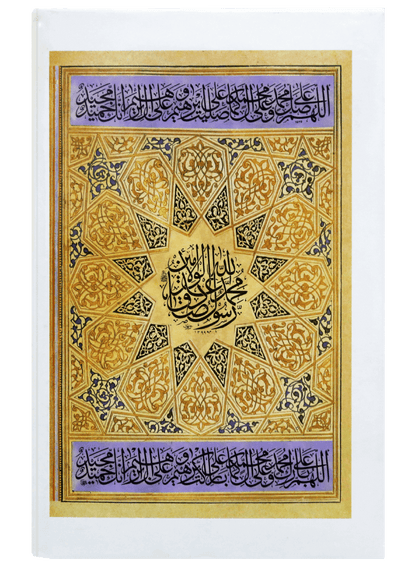 اللهم صل على محمد وعلى آل محمد كما صليت على إبراهيم وعلى آل إبراهيم إنك حميد مجيد
محمد رسول الله صادق الوعد الأمين
اللهم بارك على محمد وعلى آل محمد كما باركت على إبراهيم وعلى آل إبراهيم إنك حميد مجيد